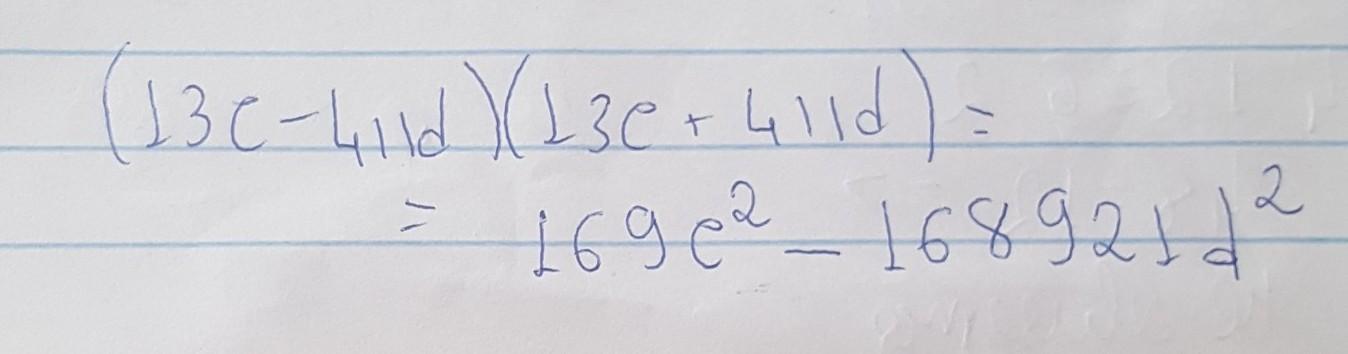 (13c-411d)(13c+411d)=
= 169c² - 168921d²